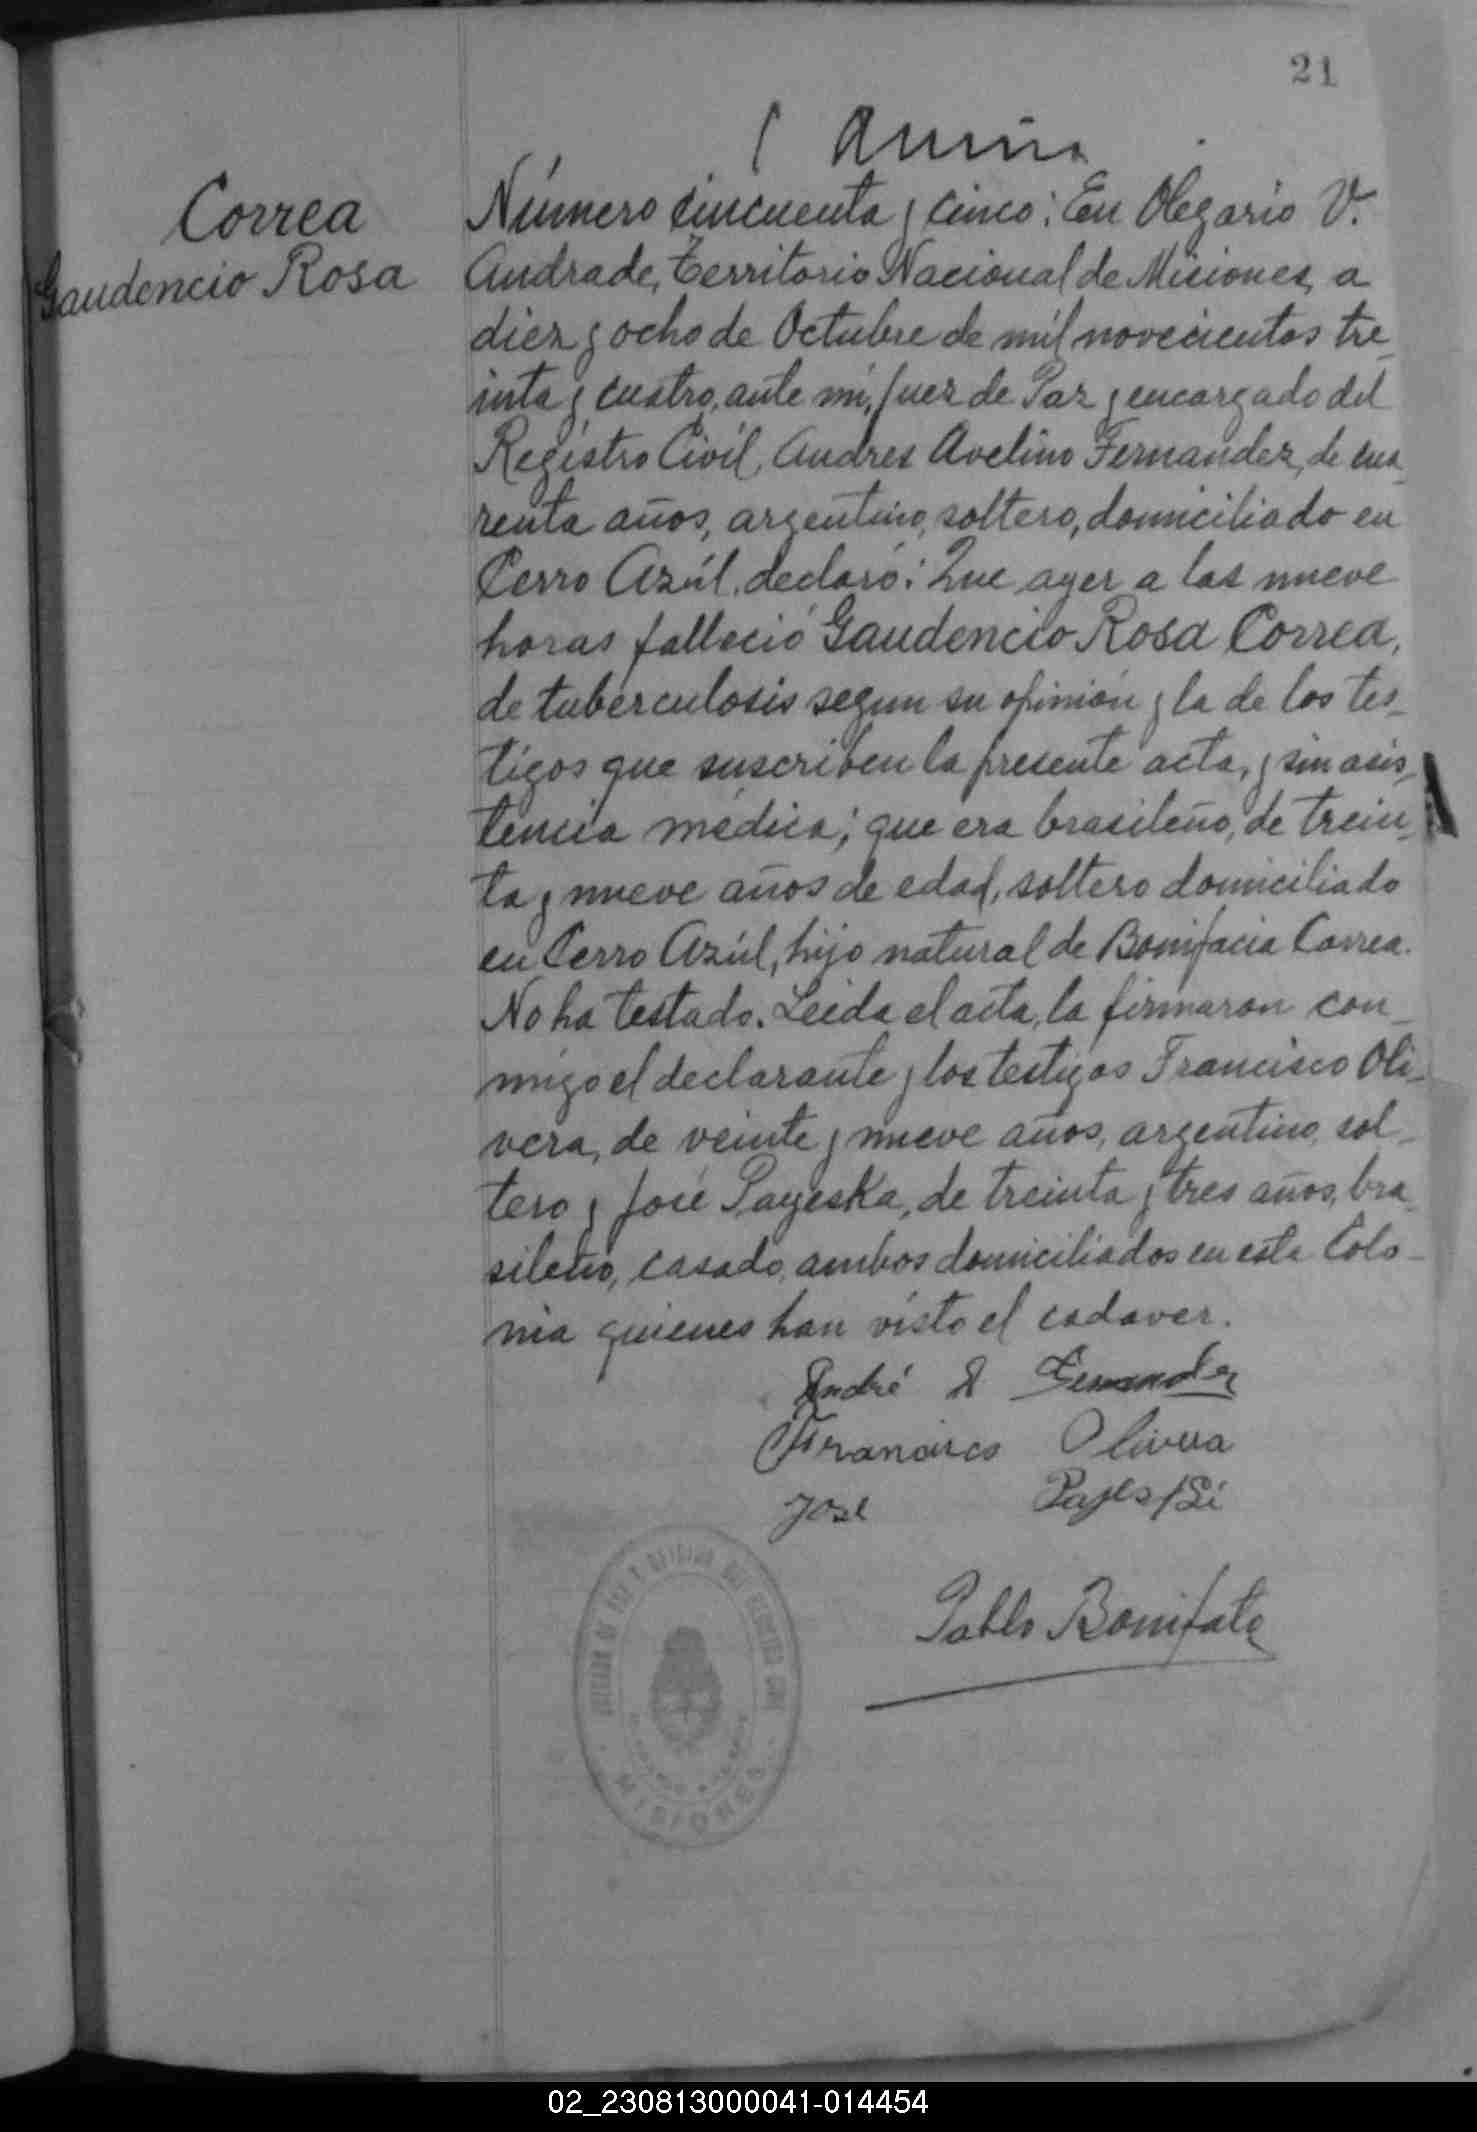 21
Correa
Gaudencio Rosa
Número cincuenta y cinco: En Olegario V.
Andrade, Territorio Nacional de Misiones, a
diez y ocho de Octubre de mil novecientos tre_
inta y cuatro, ante mí, Juez de Paz y encargado del
Registro Civíl, Andres Avelino Fernandez, de cua_
renta años, argentino, soltero, domiciliado en
Cerro Azúl, declaró: Que ayer a las nueve
horas falleció Gaudencio Rosa Correa,
de tuberculosis segun su opinión y la de los tes_
tigos que suscriben la presente acta, y sin asis_
tencia médica; que era brasileño, de trein_
ta y nueve años de edad, soltero domiciliado
en Cerro Azúl, hijo natural de Bonifacia Correa.
No ha testado. Leida el acta, la firmaron con_
migo el declarante y los testigos Francisco Oli_
vera, de veinte y nueve años, argentino, sol_
tero y José Payeska, de treinta y tres años, bra_
sileño, casado, ambos domiciliados en esta Colo_
nia quienes han visto el cadaver.
André A Fernandez
Francisco Olivera
José
Pablo Bonifato
MISIONES
02_230813000041-014454